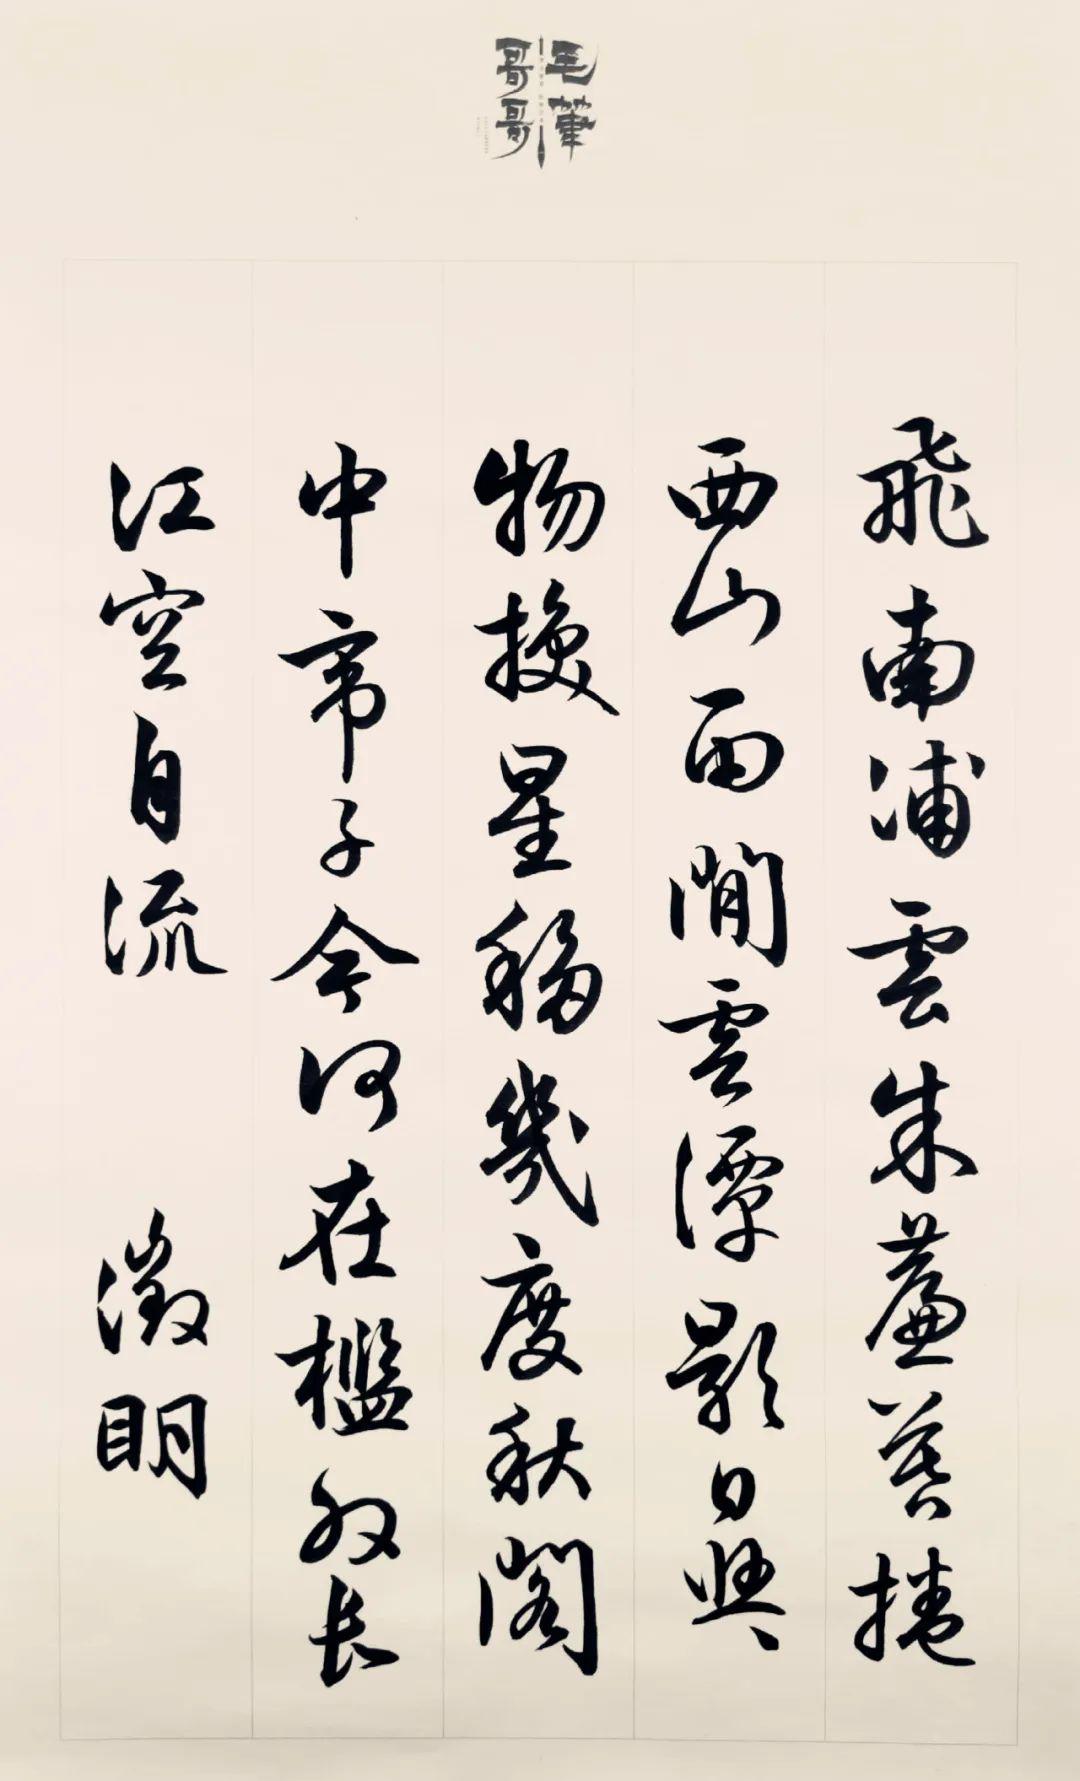 毛筆
哥哥
飛南浦雲朱簾暮捲
西山雨閒雲潭影日
物換星移幾度秋閣
中帝子今何在檻外長
江空自流 徵明